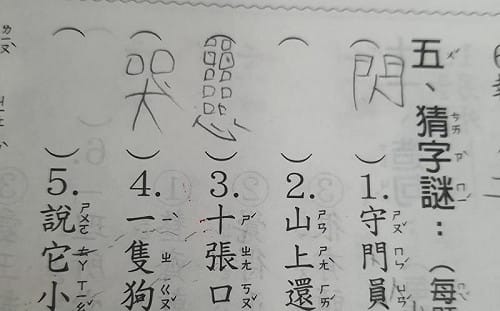 五、猜字謎：（每
（閃）1.守門員
（ ）2.山上還
（ ）3.十張口
（哭）4.一隻狗
（ ）5.說它小